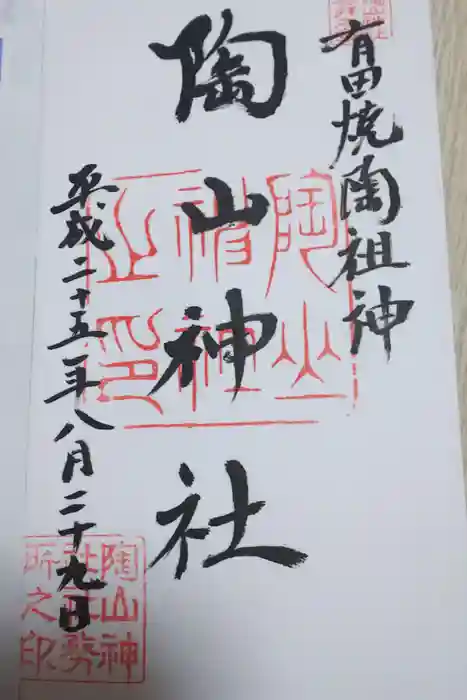 有田焼陶祖神
陶山神社
平成二十五年八月二十九日
陶山神
社社務
所之印